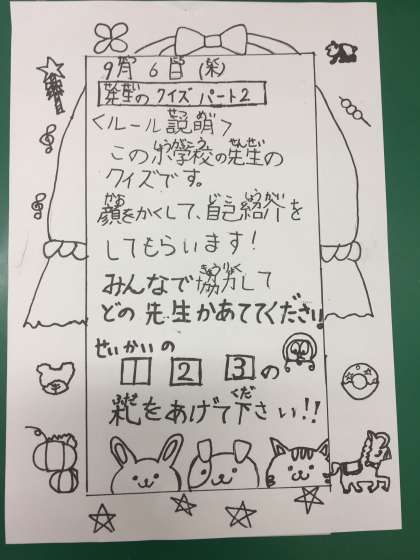 9月 6日 (木)
先生の クイズ パート2
<ルール説明>
この小学校の先生の
クイズです。
顔をかくして、自己紹介を
してもらいます!
みんなで協力して
どの先生かあててください!
せいかいの
1 2 3の
札をあげて下さい!!